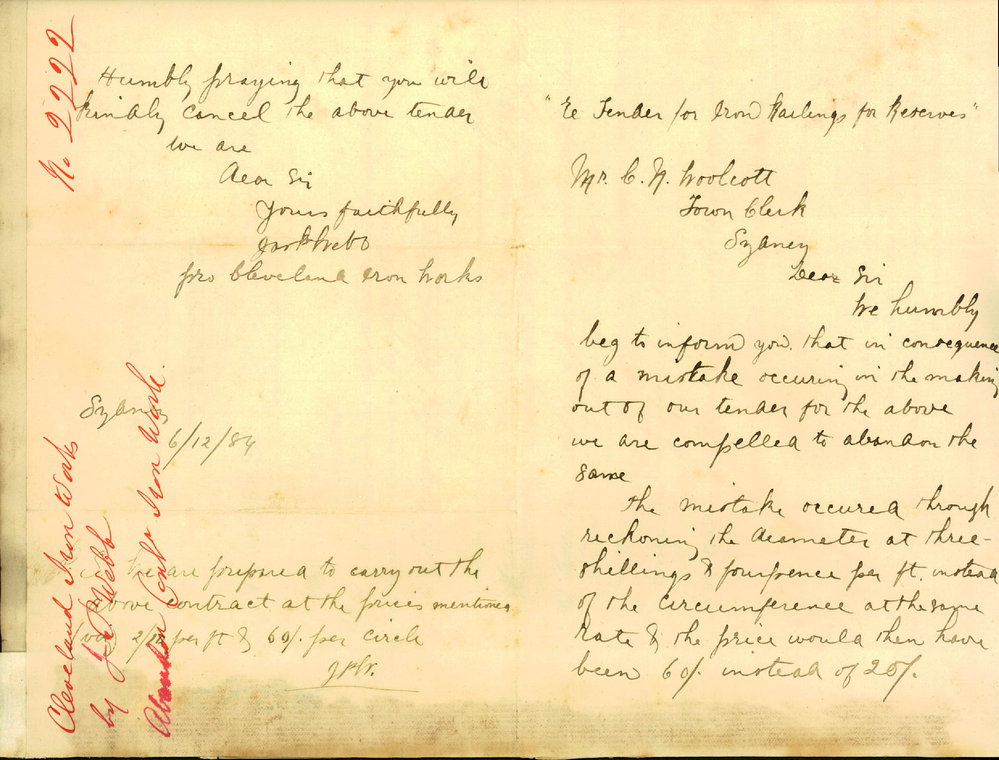 "Re Tender for Iron Railings for Reserves"
Mr. C. H. Woolcott
Town Clerk
Sydney
Dear Sir
We humbly
beg to inform you that in consequence
of a mistake occuring in the making
out of our tender for the above
we are compelled to abandon the
same
The mistake occured through
reckoning the diameter at three-
shillings & fourpence per ft. instead
of the circumference at the same
rate & the price would then have
been 60/. instead of 20/.
Humbly praying that you will
kindly cancel the above tender
We are
Dear Sir
Yours faithfully
Webb
pro Cleveland Iron Works
Sydney
6/12/84
We are prepared to carry out the
above contract at the prices mentioned
per ft & 60/. per circle
No 2222
Cleveland Iron Works
by J. Webb
Abandon Cont. for Iron Work.